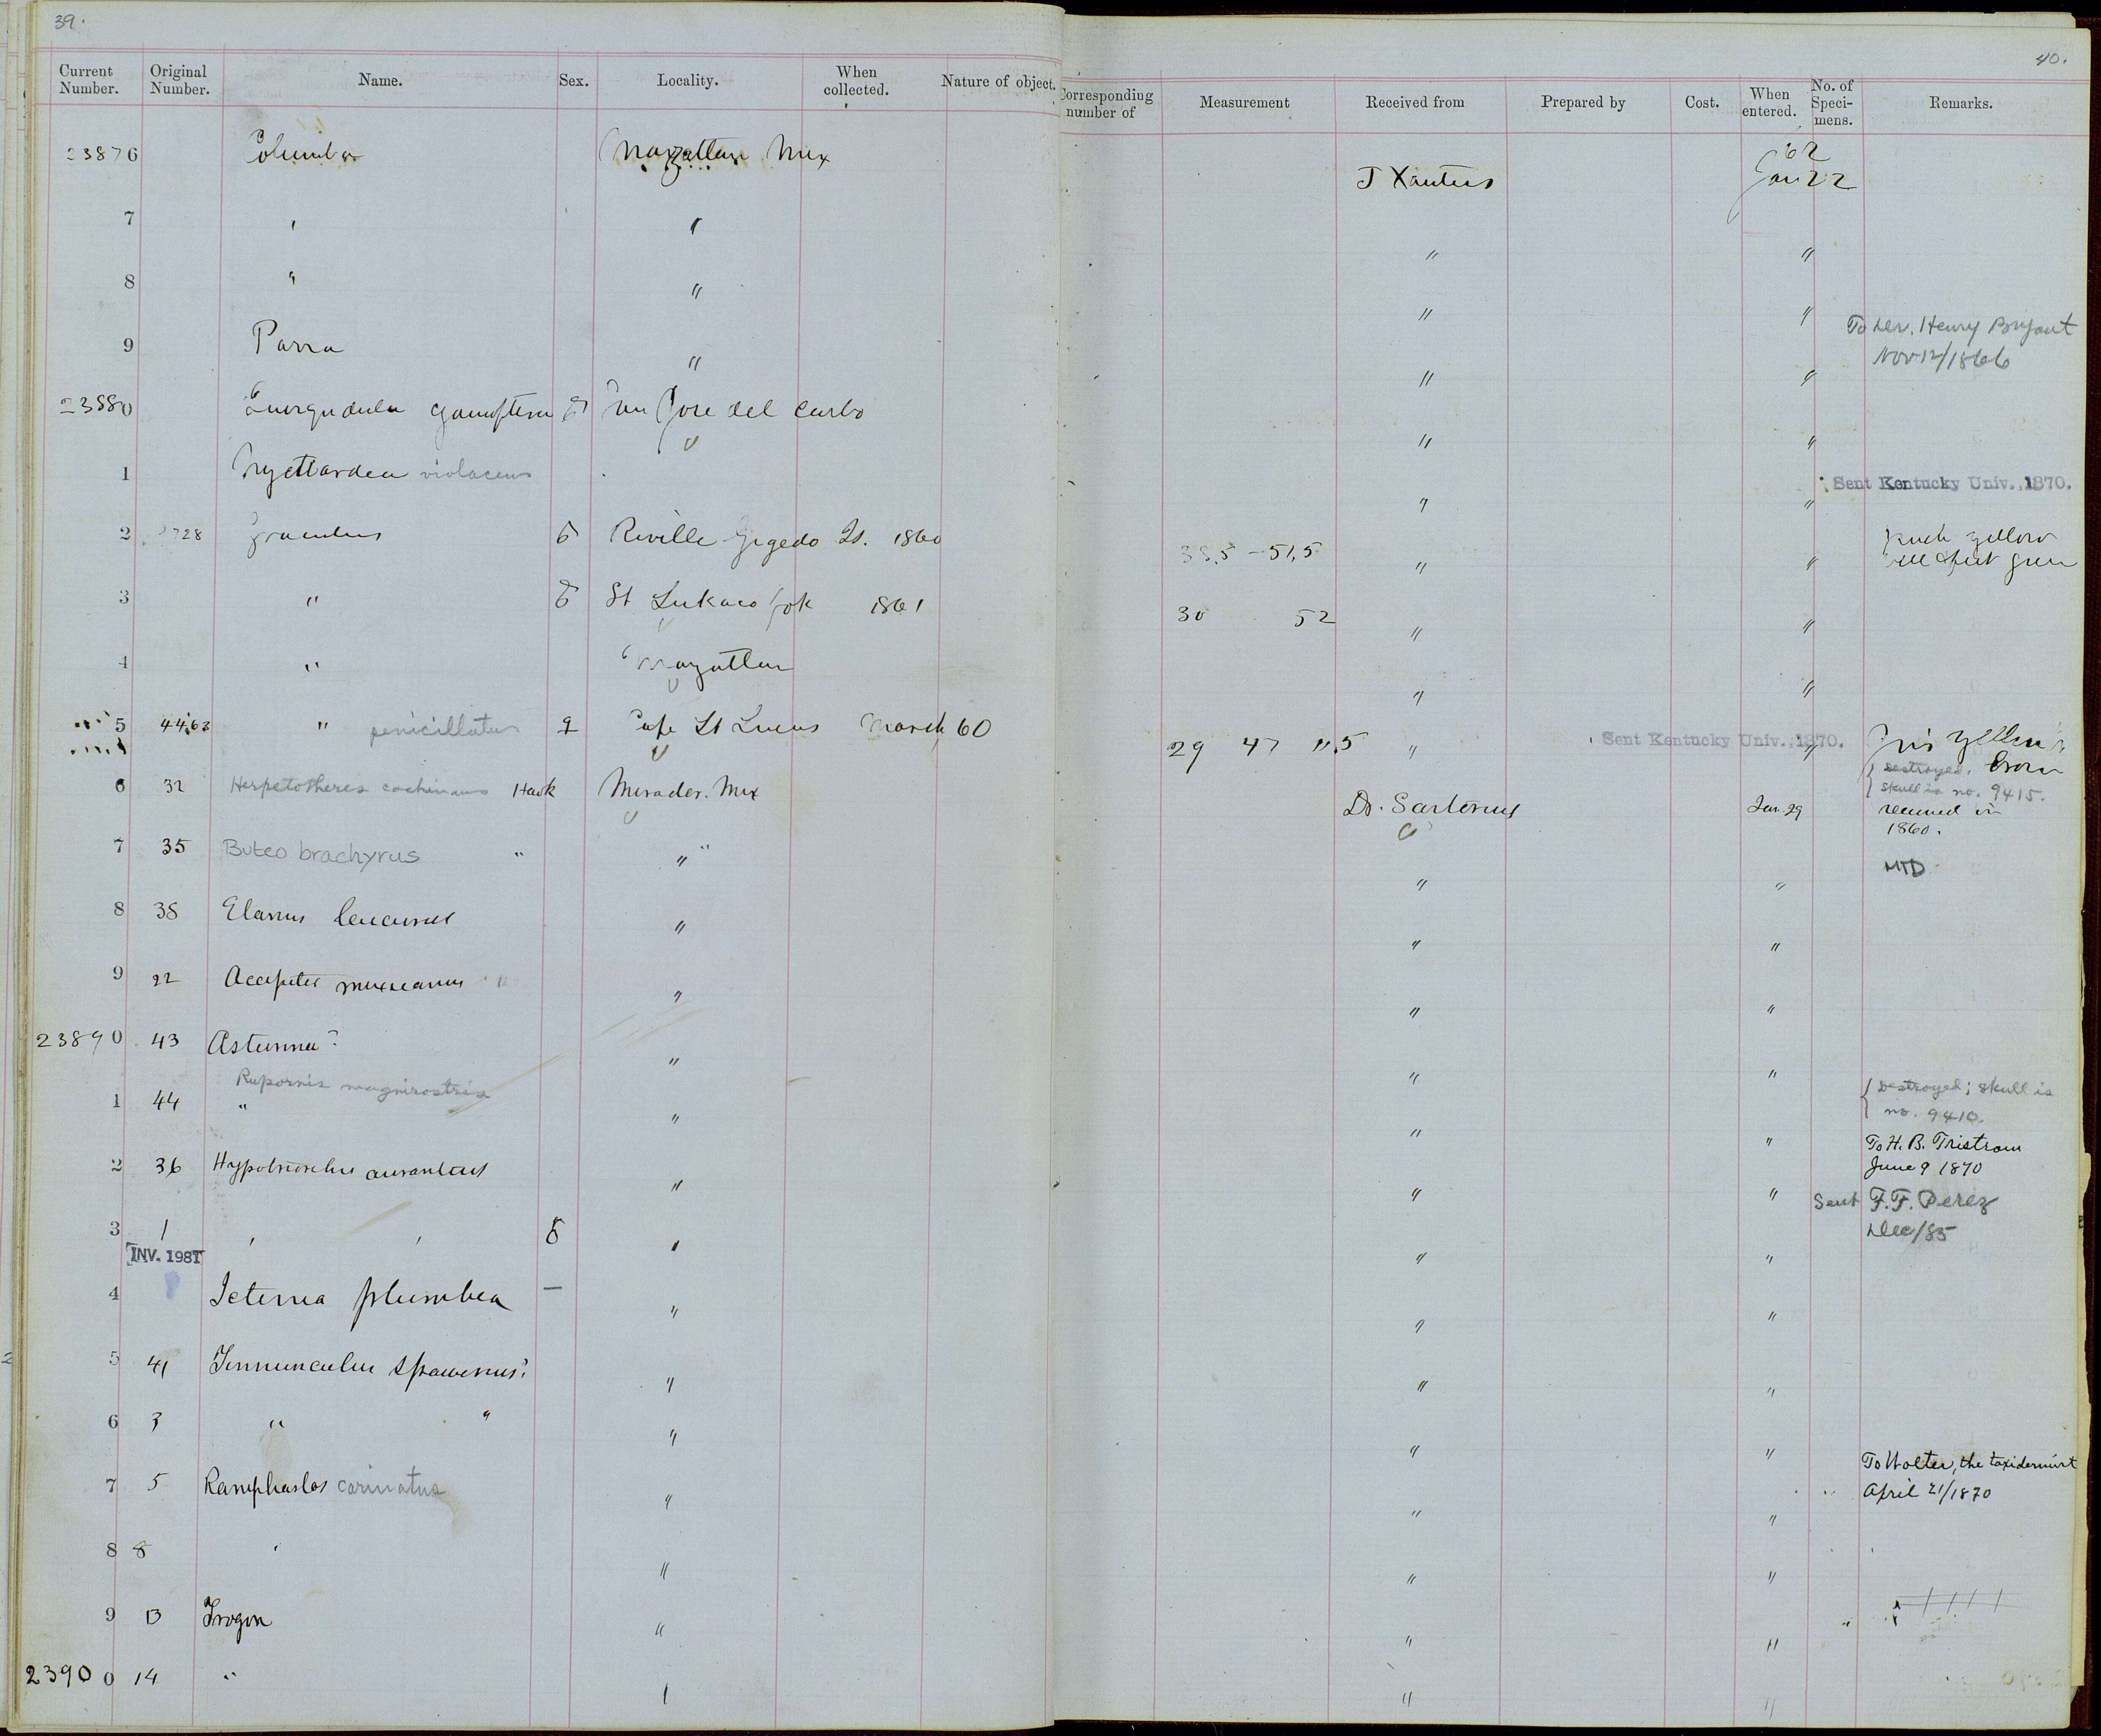 39.
Current Number. Original Number. Name. Sex. Locality. When collected. Nature of object.
23876 Columba Mazatlan Mex
7 " "
8 " "
9 Parra "
23880 Querquedula cyanoptera San Jose del Carbo
1 Nyctiardea violaceus
2 728 Graculus Reville Gigedo Is. 1860
3 " St 1861
4 " Mazatlan
5 4463 " penicillatus ♀ Cape St Lucas March 60
6 32 Herpetotheres cachinans Hawk Mirador. Mex
7 35 Buteo brachyrus " " "
8 38 Elanus leucurus "
9 22 Accipiter mexicanus " "
23890 43 Asturina? "
Rupornis magnirostris
1 44 " "
2 36 Hypotriorchis aurantius "
3 1 ' ' "
INV. 1981
4 Icteria plumbea — "
5 41 Tinnunculus sparverius? "
6 3 " " "
7 5 Ramphastos carinatus "
8 8 ' "
9 13 Trogon "
23900 14 " "
40.
Corresponding number of Measurement Received from Prepared by Cost. When entered. No. of Speci-mens. Remarks.
J Xantus '62 Jan 22
" "
" "
To Dr. Henry Bryant
Nov 12/1866
" "
" "
Sent Kentucky Univ., 1870.
" "
yellow
feet green
33.5 - 51.5 " "
30 52 " "
" "
29 47 11.5 " Sent Kentucky Univ., 1870. " Iris yellow
brown
Destroyed.
skull is no. 9415.
Dr. Sartorius Jan. 29 received in
1860.
MTD
" "
" "
" "
" "
Destroyed; skull is
no. 9410.
" "
To H. B. Tristram
June 9 1870
" "
Sent F. F. Perez
Dec/85
" "
" "
" "
" "
To Wolter, the taxidermist
April 21/1870
" "
" "
" "
" "